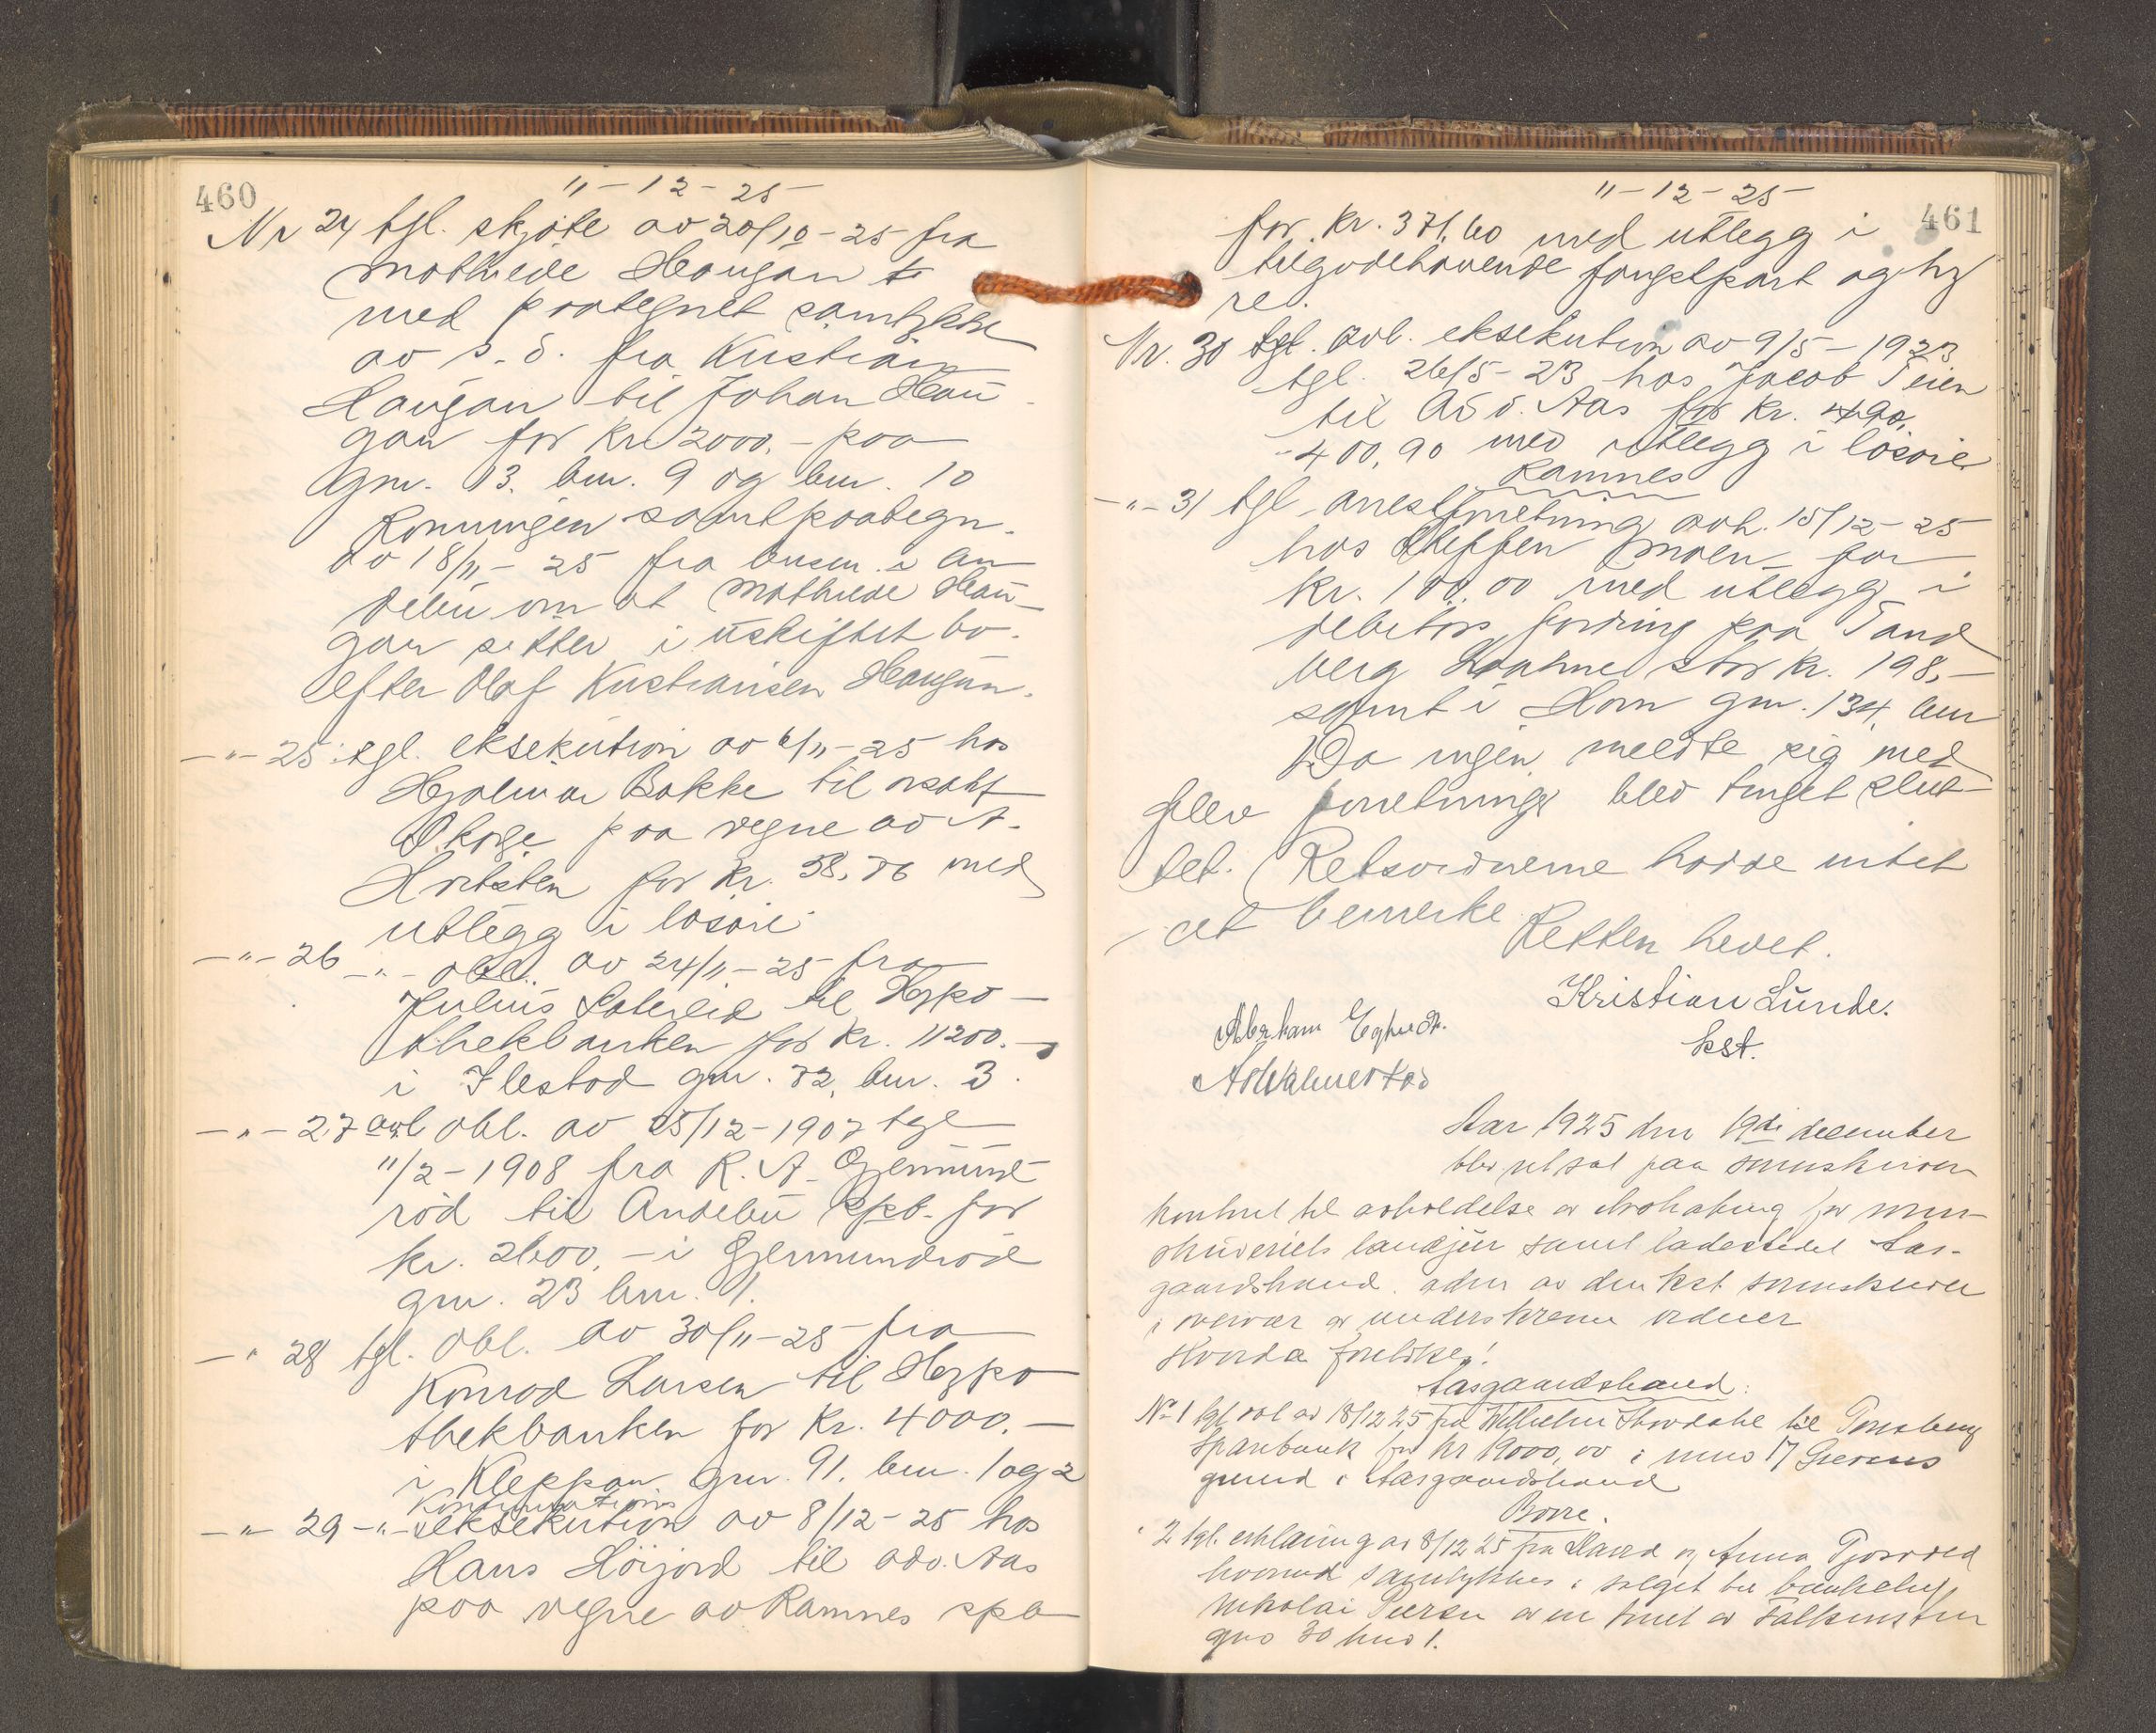 460
11-12-25
Nr 24 tgl. skjøte av 20/10-25 fra
Mathilde Haugan
med paategnet samtykke
av s. d. fra Kristian
Haugan til Johan Hau-
gan for kr 2000.- paa
gnr. 13. bnr. 9 og bnr. 10
Ronningen samt paategn.
av 18/11-25 fra lensm. i An-
debu om at Mathilde Hau-
gan sitter i uskiftet bo
efter Olaf Kristiansen Haugan.
-"- 25 tgl. eksekution av 6/11-25 hos
Hjalmar Bakke til
paa vegne av A.
for kr. 58.76 med
utlegg i løsøre
-"- 26 -"- obl. av 24/11-25 fra
Julius til Hypo-
thekbanken for kr. 11200.-
i Ilestad gnr. 72, bnr. 3.
-"- 27 avl obl. av 25/12-1907 tgl
11/2-1908 fra R. A. Gjermund-
rød til Andebu spb. for
kr. 2600.- i Gjermundrød
gnr. 23 bnr. 1.
-" 28 tgl. obl. av 30/11-25 fra
Konrad Larsen til Hypo
thekbanken for kr. 4000.-
i Kleppan gnr. 91. bnr. 1 og 2
-"- 29 -"- eksekution av 8/12-25 hos
Hans Höijord til adv. Aas
paa vegne av Ramnes spb
461
11-12-25
for kr. 371.60 med utlegg i
tilgodehavende fangstpart og hy
re.
Nr. 30 tgl. avl. eksekution av 9/5-1923
tgl. 26/5-23 hos Jacob Teien
til adv. Aas for kr. 490,
400,90 med utlegg i løsøre
Ramnes
-"- 31 tgl arrestforretning avh. 15/12-25
hos Steffen Moen for
kr. 100.00 med utlegg i
debitors fordring paa Tand
berg stor kr. 198,-
samt i Horn gnr. 134, bnr
Da ingen meldte sig med
flere forretninger blev tinget slut-
tet. Retsvidnerne hadde intet
at bemerke
Retten hevet.
Kristian Lunde.
kst.
Abraham
Aar 1925 den 19de december
blev ret sat paa sorenskriver
kontoret til avholdelse av for soren-
skriveriets landjur samt ladestedet Aas-
gaardstrand. av den kst sorenskriver
i overvær av underskrevne vidner
Hvorda foretokes!
Aasgaardstrand.
No 1 tgl obl av 18/12 25 fra til Tønsberg
Sparebank for kr 19000,00 i mno 17
grund i Aasgaardstrand
Borre.
" 2 tgl. erklæring av 8/12 25 fra og Anna
hvorved samtykkes i salget til
Nikolai av en tomt av Falkensten
gno 30 bno 1.